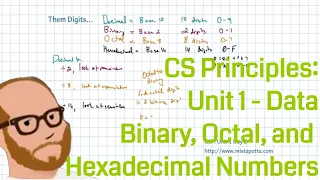 Them Digits...
Decimal = Base 10 10 digits 0-9
Binary = Base 2 2 digits 0-1
Octal = Base 8 8 digits 0-7
Hexadecimal = Base 16 16 digits 0-F
Decimal to
÷ 2, look at remainders
÷ 8, look at remainders
÷ 16, look at remainders
Octal to
binary
1 octal digit
3 binary digits
CS Principles:
Unit 1 - Data
Binary, Octal, and
http://www.mistapotta.com
Hexadecimal Numbers